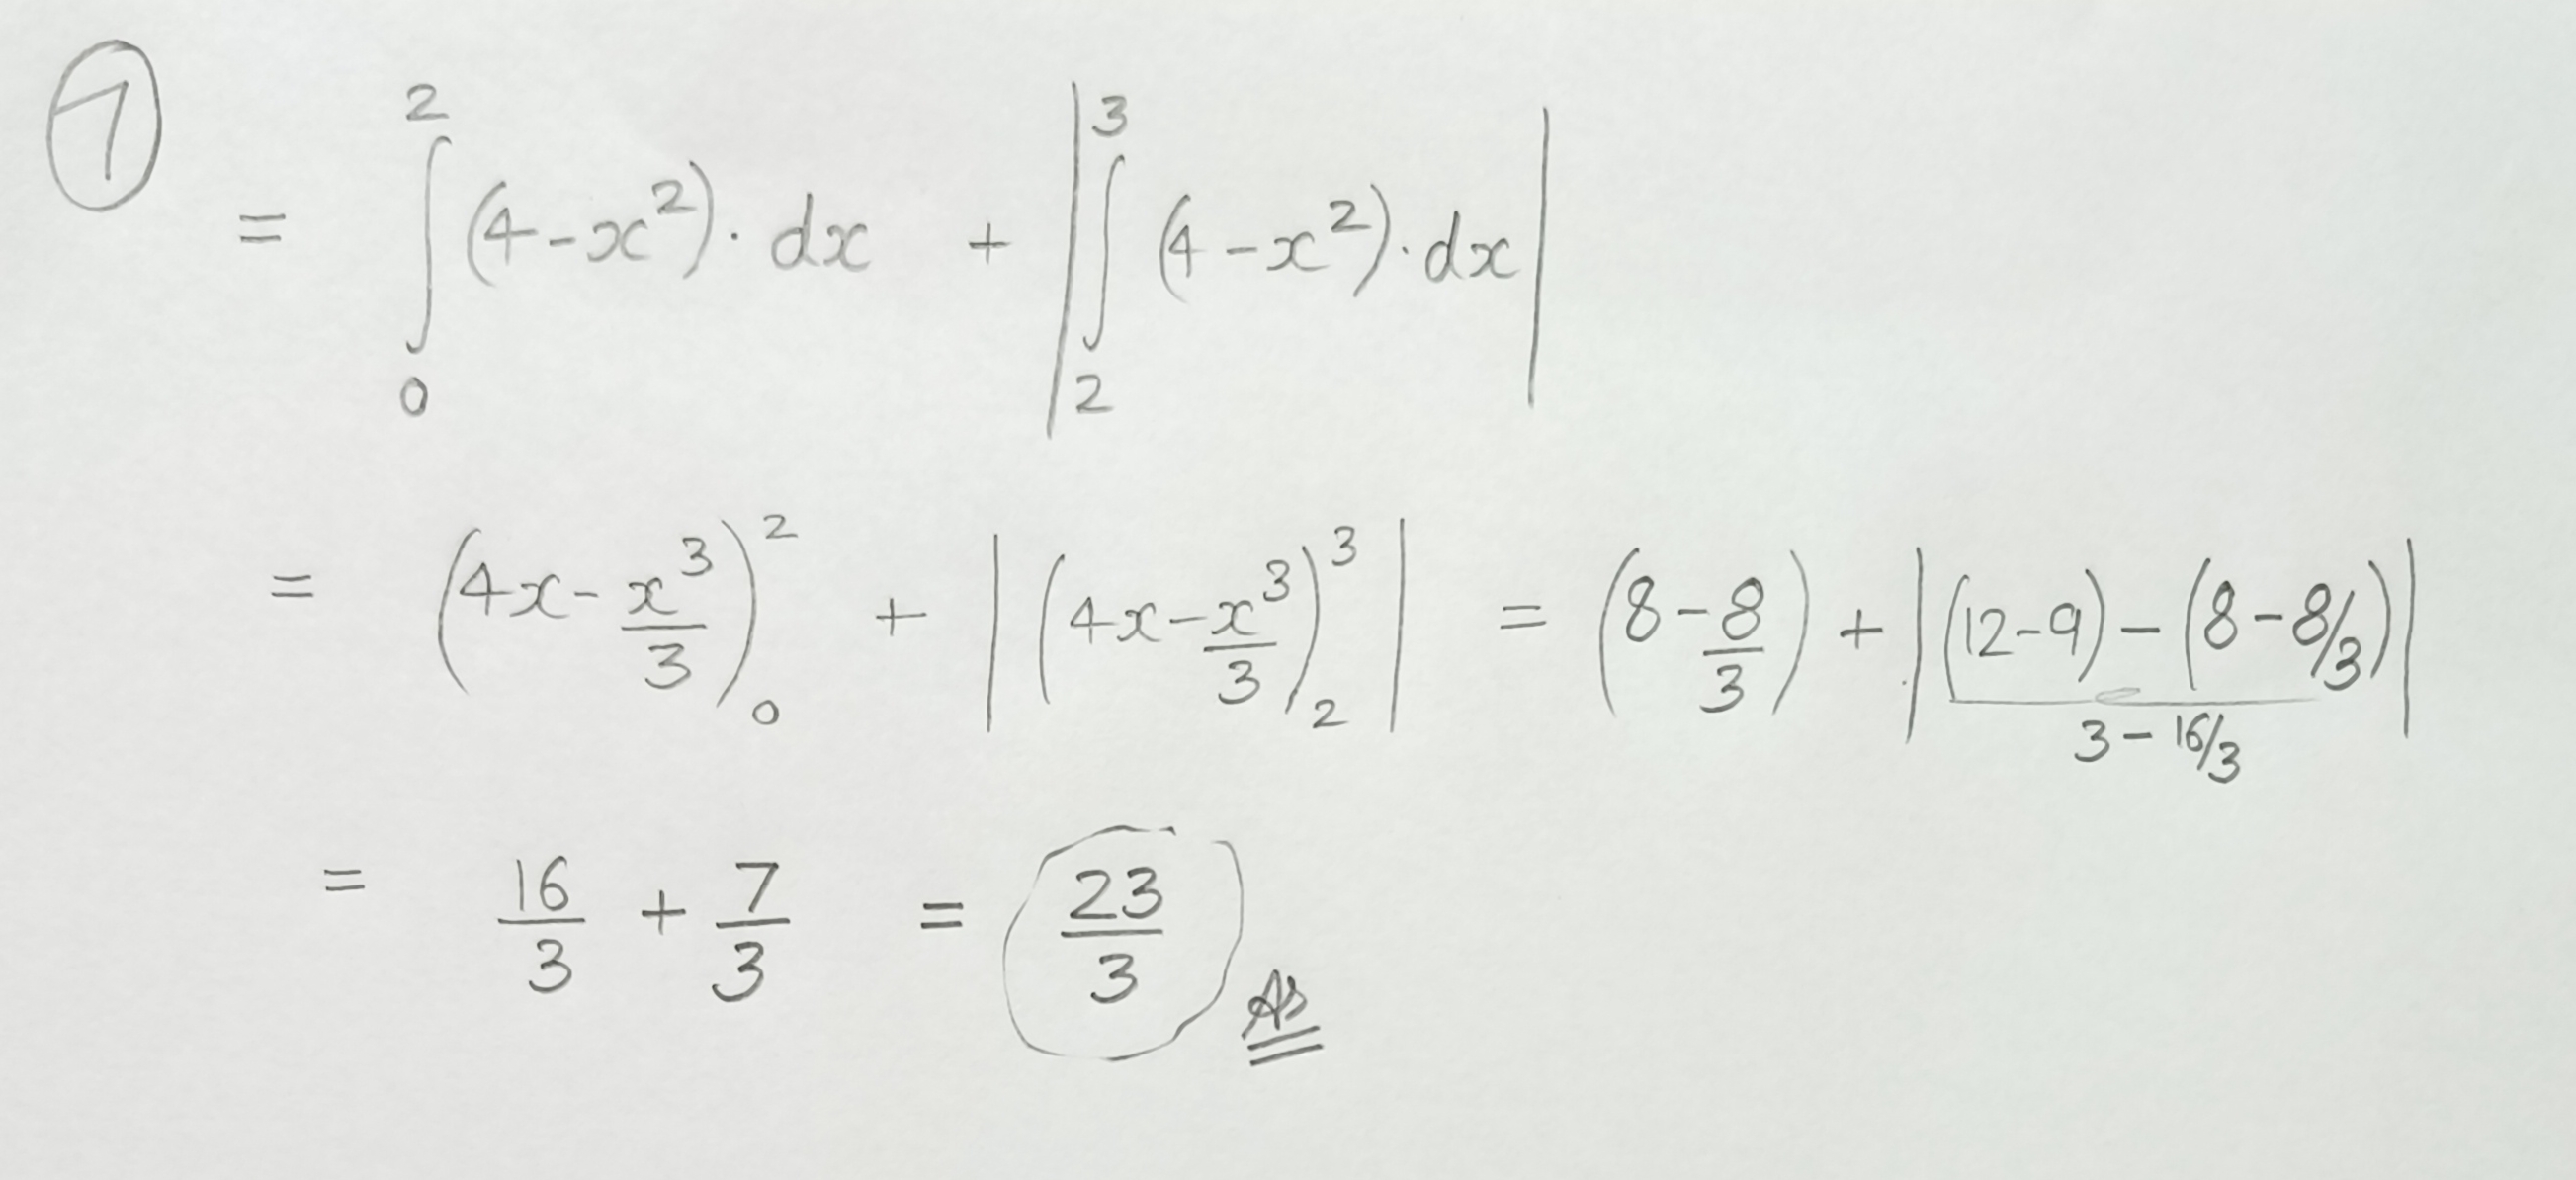 ⑦
= ∫₀² (4-x²)·dx + |∫₂³ (4-x²)·dx|
= (4x - x³/3)₀² + |(4x - x³/3)₂³| = (8 - 8/3) + |(12-9) - (8-8/3)|
3 - 16/3
= 16/3 + 7/3 = 23/3